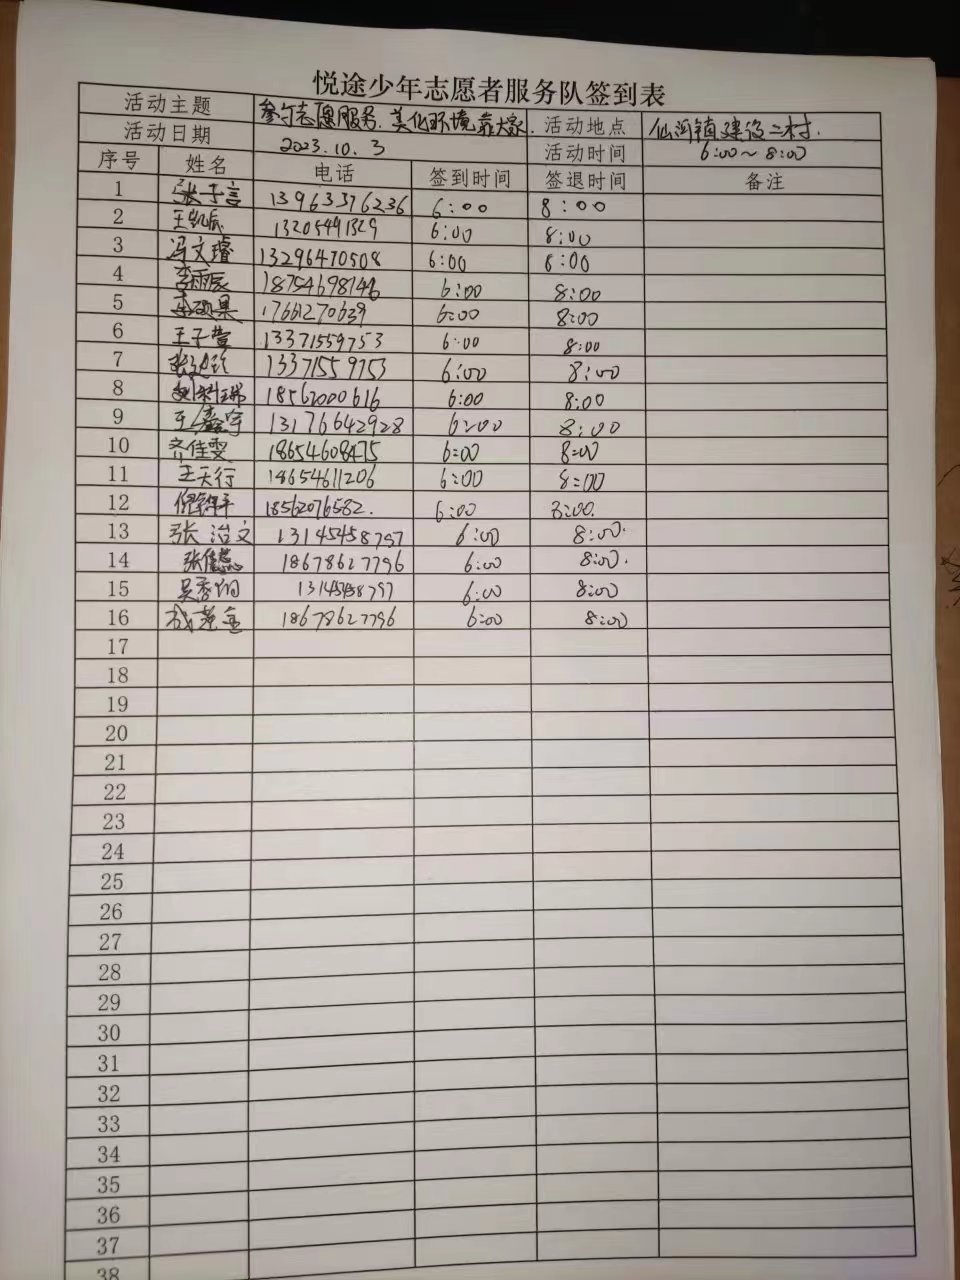 悦途少年志愿者服务队签到表
活动主题 参与志愿服务.美化环境靠大家. 活动地点 仙河镇建设二村.
活动日期 2023.10.3 活动时间 6:00~8:00
序号 姓名 电话 签到时间 签退时间 备注
1 张子言 13963376236 6:00 8:00
2 王凯辰 13205491329 6:00 8:00
3 冯文璿 13296470508 6:00 8:00
4 李雨辰 18754698146 6:00 8:00
5 17661270639 6:00 8:00
6 王子萱 13371559753 6:00 8:00
7 13371559753 6:00 8:00
8 18562000616 6:00 8:00
9 王鑫宇 13176642928 6:00 8:00
10 齐佳雯 18654608475 6:00 8:00
11 王天行 18654611206 6:00 8:00
12 18562076582. 6:00 8:00.
13 张治文 13145458797 6:00 8:00.
14 18678627796 6:00 8:00.
15 13145458797 6:00 8:00
16 18678627796 6:00 8:00
17
18
19
20
21
22
23
24
25
26
27
28
29
30
31
32
33
34
35
36
37
38